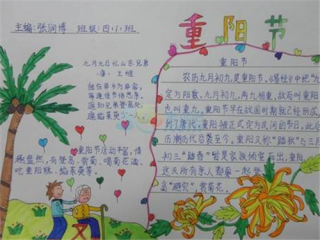 主编:张润博 班级:四(1)班
重阳节
九月九日忆山东兄弟
唐:王维
独在异乡为异客,
每逢佳节倍思亲。
遥知兄弟登高处,
遍插茱萸少一人。
重阳节活动丰富,情
趣盎然,有登高、赏菊、喝菊花酒、
吃重阳糕、插茱萸等。
重阳节
农历九月初九是重阳节,《易经》中把"九"
定为阳数,九月初九,两九相重,故而叫重阳
也叫重九。重阳节早在战国时期就已经形成,
到了唐代,重阳被正式定为民间的节日,此后
历朝历代沿袭至今。重阳又称"踏秋"与三月
初三"踏春"皆是家族倾室而出,重阳
这天所有亲人都要一起登高
"避灾",赏菊花。